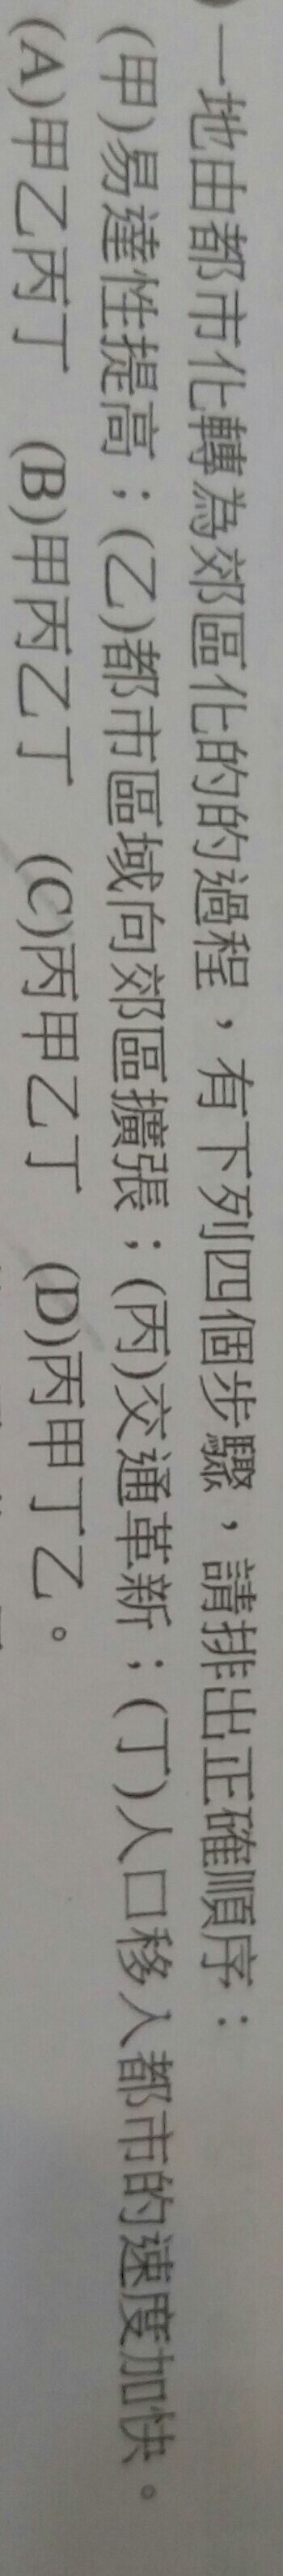 一地由都市化轉為郊區化的的過程，有下列四個步驟，請排出正確順序：
(甲)易達性提高；(乙)都市區域向郊區擴張；(丙)交通革新；(丁)人口移入都市的速度加快。
(A)甲乙丙丁 (B)甲丙乙丁 (C)丙甲乙丁 (D)丙甲丁乙。